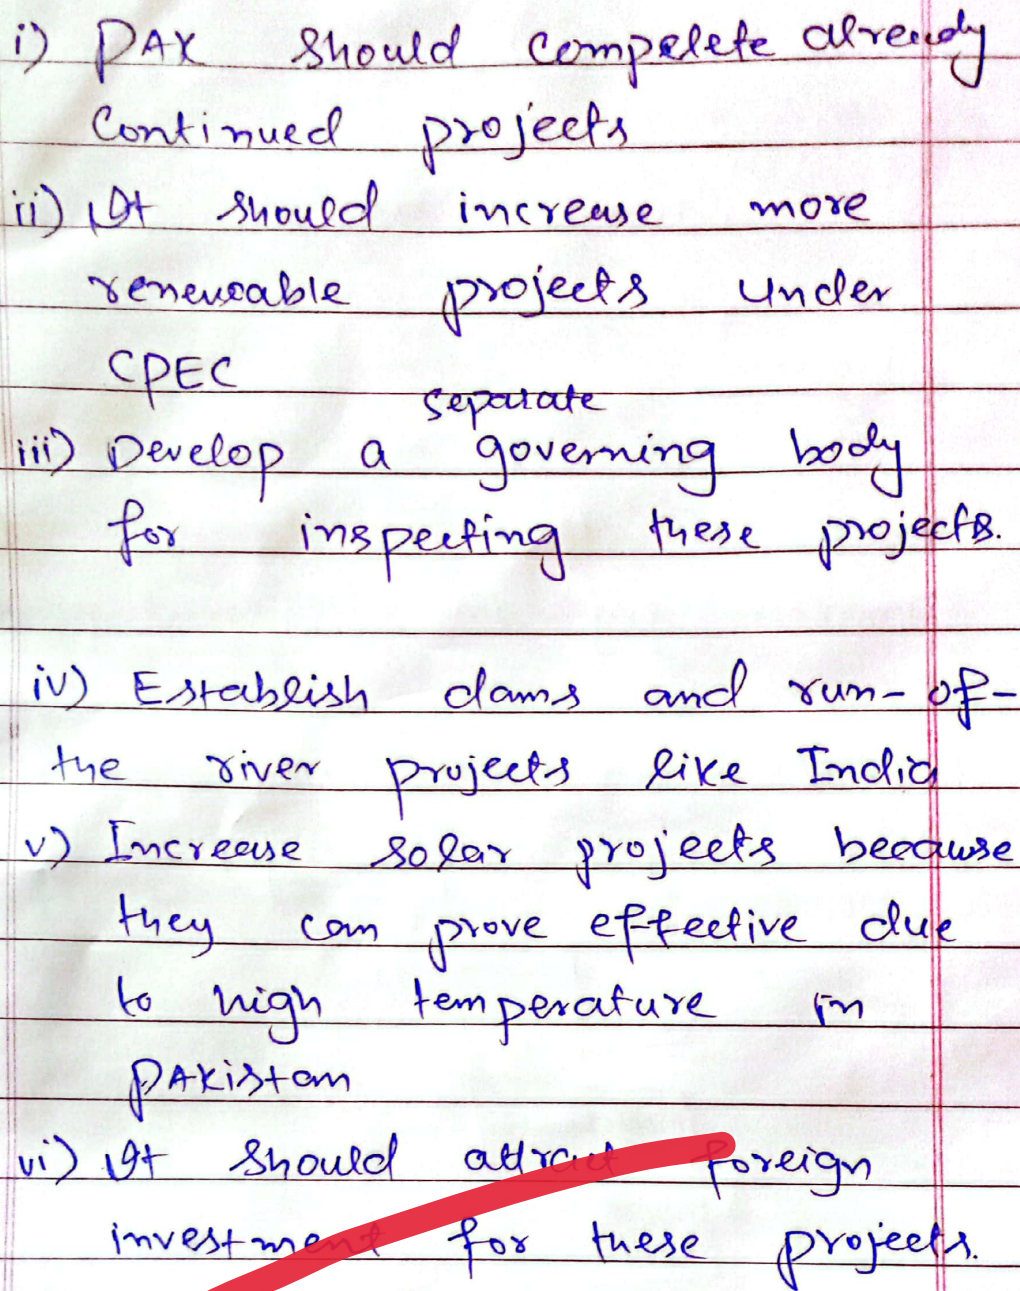 i) PAK should compelete already
Continued projects
ii) It should increase more
reneweable projects under
CPEC
separate
iii) Develop a governing body
for inspecting these projects.
iv) Establish dams and run-of-
the river projects like India
v) Increase solar projects because
they can prove effective due
to high temperature in
PAKistan
vi) It should attract foreign
investment for these projects.